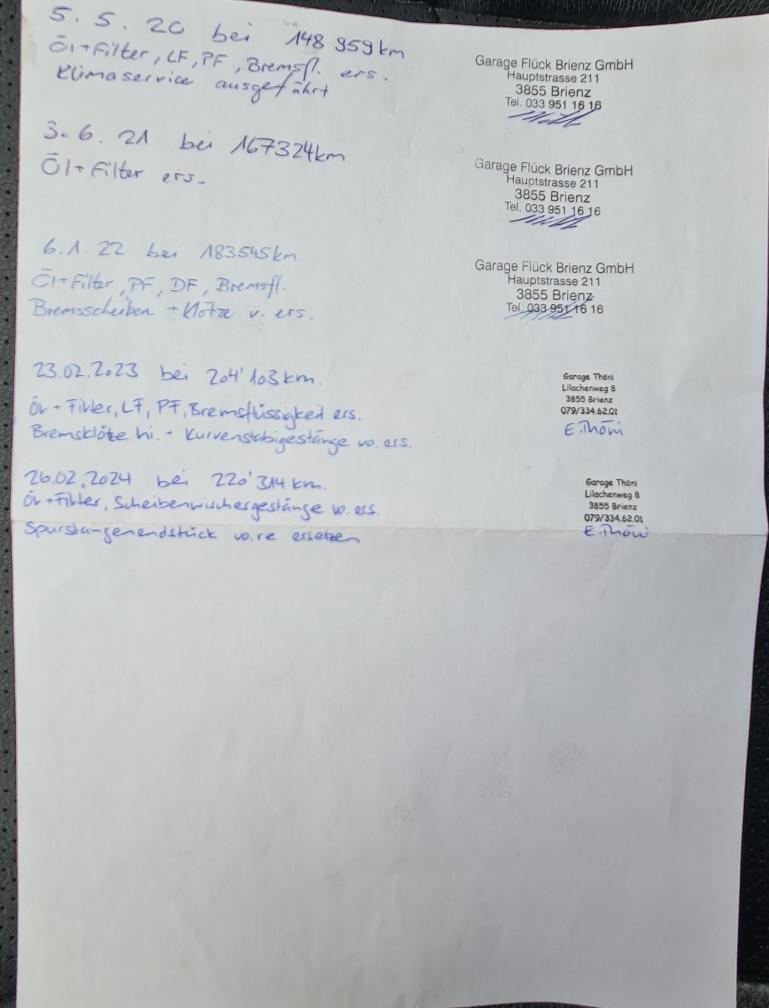 5. 5. 20 bei 148 959 km
Öl + Filter, LF, PF, Bremsfl. ers.
Klimaservice ausgeführt
Garage Flück Brienz GmbH
Hauptstrasse 211
3855 Brienz
Tel. 033 951 16 16
3. 6. 21 bei 167324 km
Öl + Filter ers.
Garage Flück Brienz GmbH
Hauptstrasse 211
3855 Brienz
Tel. 033 951 16 16
6. 1. 22 bei 183545 km
Öl + Filter, PF, DF, Bremsfl.
Bremsscheiben + Klötze v. ers.
Garage Flück Brienz GmbH
Hauptstrasse 211
3855 Brienz
Tel. 033 951 16 16
23.02.2023 bei 204'103 km.
Öl + Filter, LF, PF, Bremsflüssigkeit ers.
Bremsklötze hi. + Kurvenstabigestänge vo. ers.
Garage Thöni
Lilachenweg 8
3855 Brienz
079/334.62.01
E. Thöni
26.02.2024 bei 220'314 km.
Öl + Filter, Scheibenwischergestänge vo. ers.
Spurstangenendstück vo. re ersetzen
Garage Thöni
Lilachenweg 8
3855 Brienz
079/334.62.01
E. Thöni